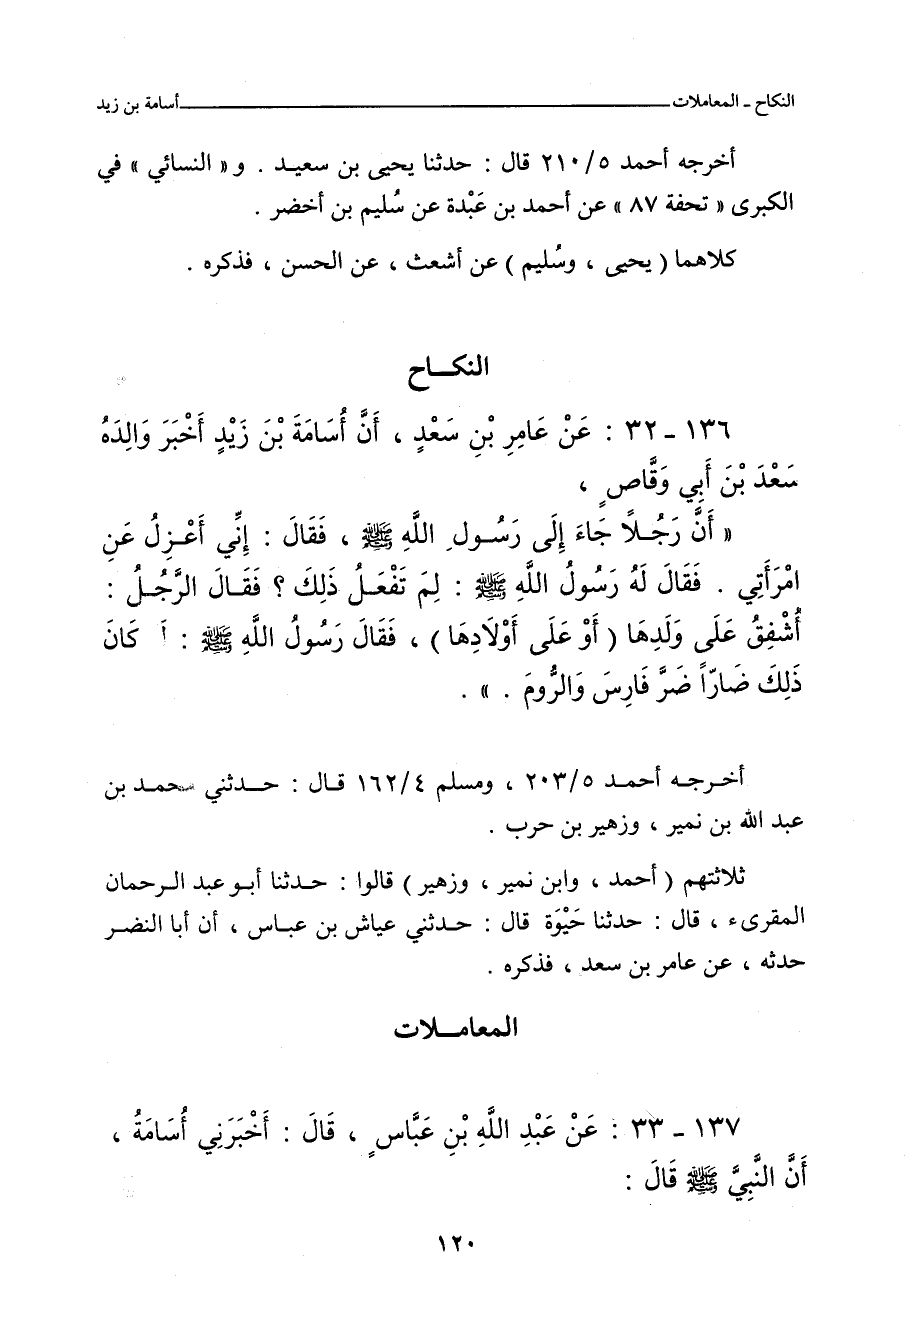 النكاح - المعاملات أسامة بن زيد
أخرجه أحمد ٥/٢١٠ قال : حدثنا يحيى بن سعيد . و « النسائي » في
الكبرى « تحفة ٨٧ » عن أحمد بن عَبْدة عن سُليم بن أخضر .
كلاهما ( يحيى ، وسُليم ) عن أشعث ، عن الحسن ، فذكره .
النكـاح
١٣٦ - ٣٢ : عَنْ عَامِرِ بْنِ سَعْدٍ ، أَنَّ أُسَامَةَ بْنَ زَيْدٍ أَخْبَرَ وَالِدَهُ
سَعْدَ بْنَ أَبِي وَقَّاصٍ ،
« أَنَّ رَجُلاً جَاءَ إِلَى رَسُولِ اللَّهِ ﷺ ، فَقَالَ : إِنِّي أَعْزِلُ عَنِ
امْرَأَتِي . فَقَالَ لَهُ رَسُولُ اللَّهِ ﷺ : لِمَ تَفْعَلُ ذَلِكَ ؟ فَقَالَ الرَّجُلُ :
أُشْفِقُ عَلَى وَلَدِهَا ( أَوْ عَلَى أَوْلَادِهَا ) ، فَقَالَ رَسُولُ اللَّهِ ﷺ : كَانَ
ذَلِكَ ضَارّاً ضَرَّ فَارِسَ وَالرُّومَ . » .
أخرجه أحمد ٥/٢٠٣ ، ومسلم ٤/١٦٢ قال : حدثني محمد بن
عبد الله بن نمير ، وزهير بن حرب .
ثلاثتهم ( أحمد ، وابن نمير ، وزهير ) قالوا : حدثنا أبو عبد الرحمان
المقرىء ، قال : حدثنا حَيْوَة قال : حدثني عياش بن عباس ، أن أبا النضر
حدثه ، عن عامر بن سعد ، فذكره .
المعاملات
١٣٧ - ٣٣ : عَنْ عَبْدِ اللَّهِ بْنِ عَبَّاسٍ ، قَالَ : أَخْبَرَنِي أُسَامَةُ ،
أَنَّ النَّبِيَّ ﷺ قَالَ :
١٢٠